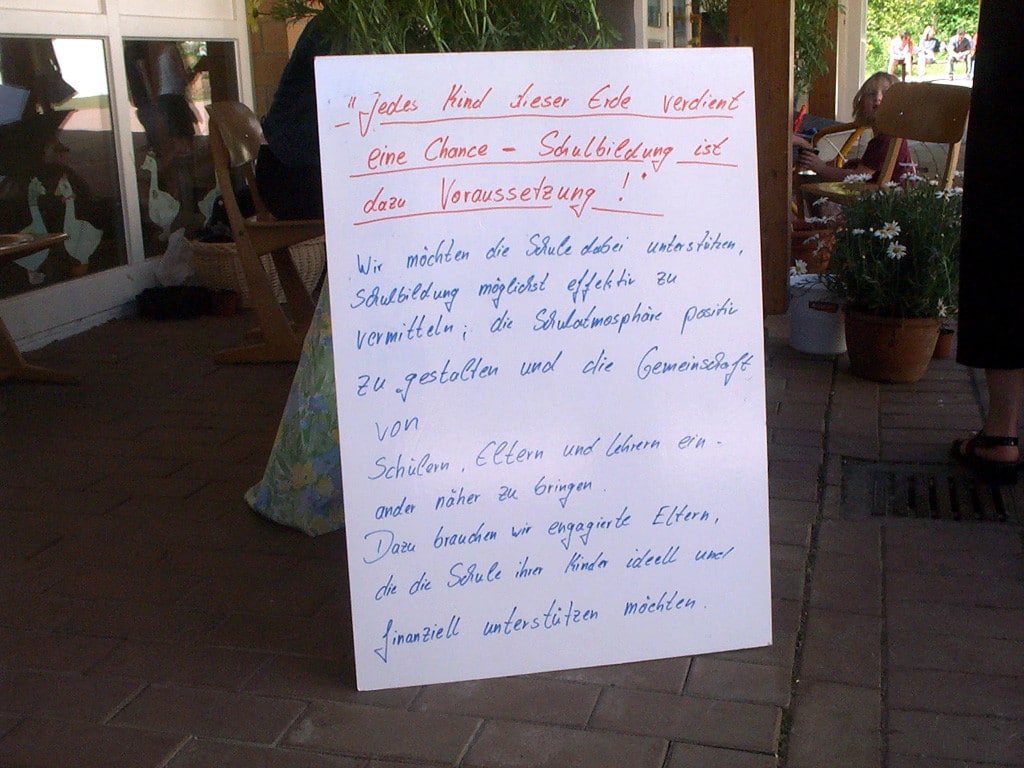 "Jedes Kind dieser Erde verdient
eine Chance - Schulbildung ist
dazu Voraussetzung!"
Wir möchten die Schule dabei unterstützen,
Schulbildung möglichst effektiv zu
vermitteln; die Schulatmosphäre positiv
zu gestalten und die Gemeinschaft
von
Schülern, Eltern und Lehrern ein-
ander näher zu bringen.
Dazu brauchen wir engagierte Eltern,
die die Schule ihrer Kinder ideell und
finanziell unterstützen möchten.